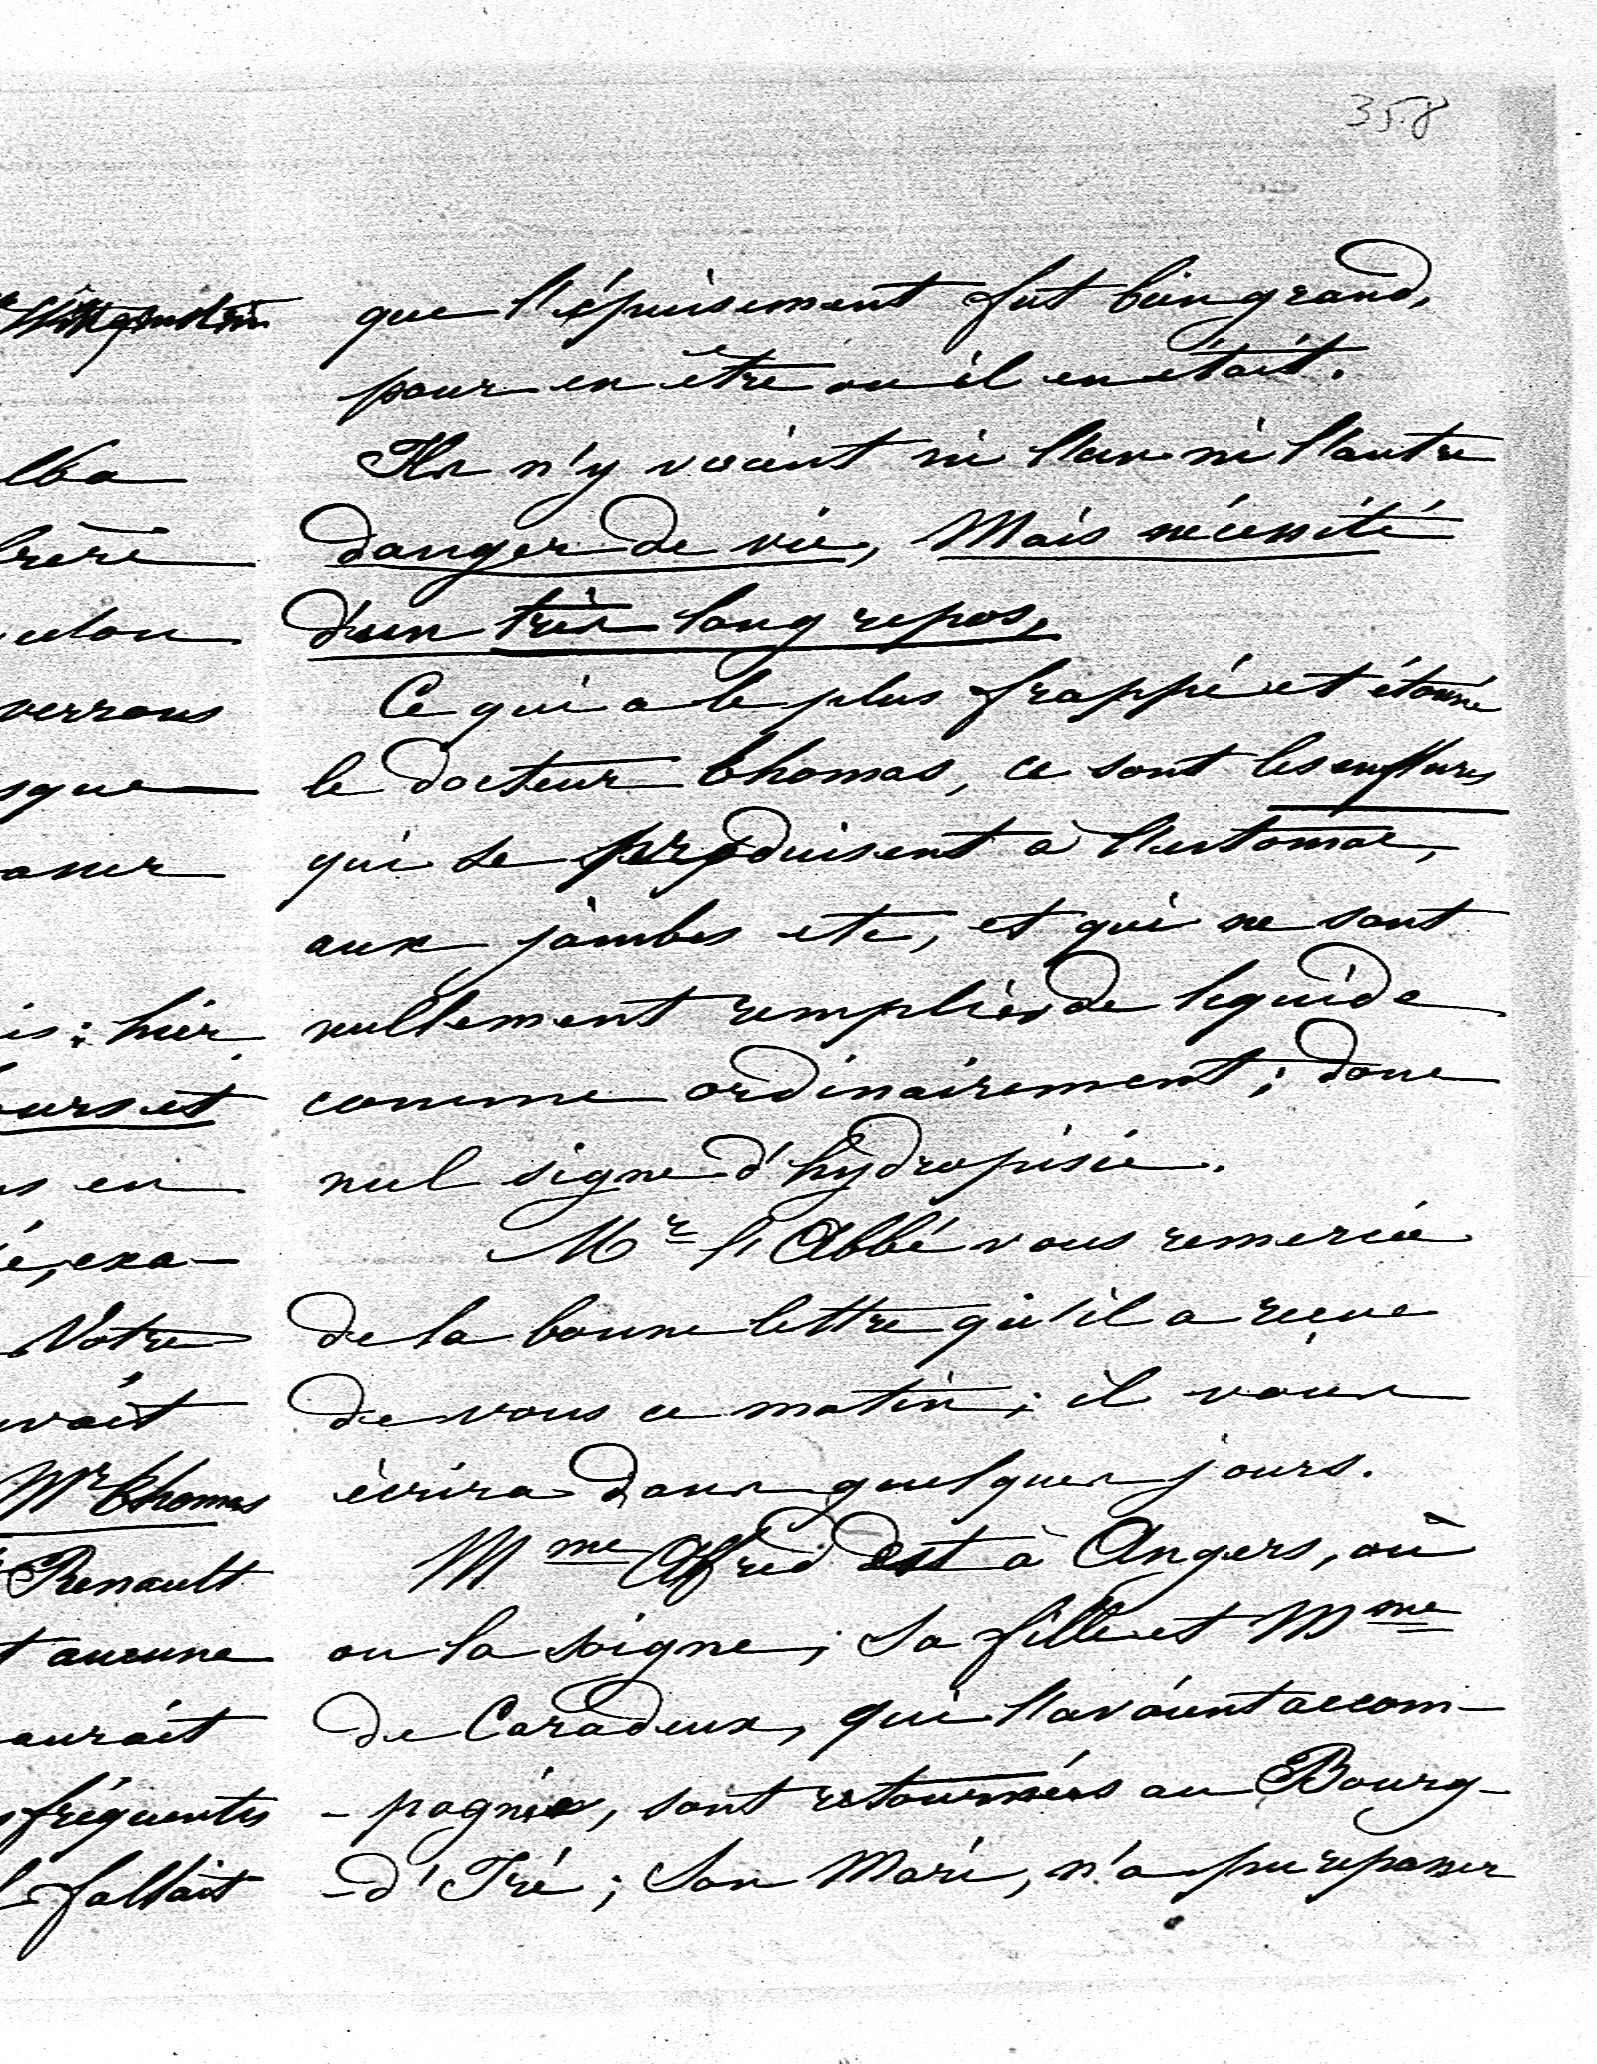 358
que l'épuisement fut bien grand,
pour en être où il en était.
Ils n'y voient ni l'un ni l'autre
danger de vie, Mais nécessité
d'un très long repos,
Ce qui a le plus frappé et étonné
le docteur Thomas, ce sont les enflures
qui se produisent à l'estomac,
aux jambes etc, et qui ne sont
nullement remplies de liquide
comme ordinairement; donc
nul signe d'hydropisie.
Mr l'Abbé vous remercie
de la bonne lettre qu'il a reçue
de vous ce matin; il vous
écrira dans quelques jours.
Mme Alfred est à Angers, où
on la soigne; sa fille et Mme
de Caradeux, qui l'avaient accom-
-pagnée, sont retournées au Bourg-
-d'Iré; son Mari, n'a pu repasser
lba
frère
verrons
sque
is: hier
ours et
s en
é, exa-
Votre
vait
Mr Thomas
Renault
t aucune
aurait
fréquentes
fallait